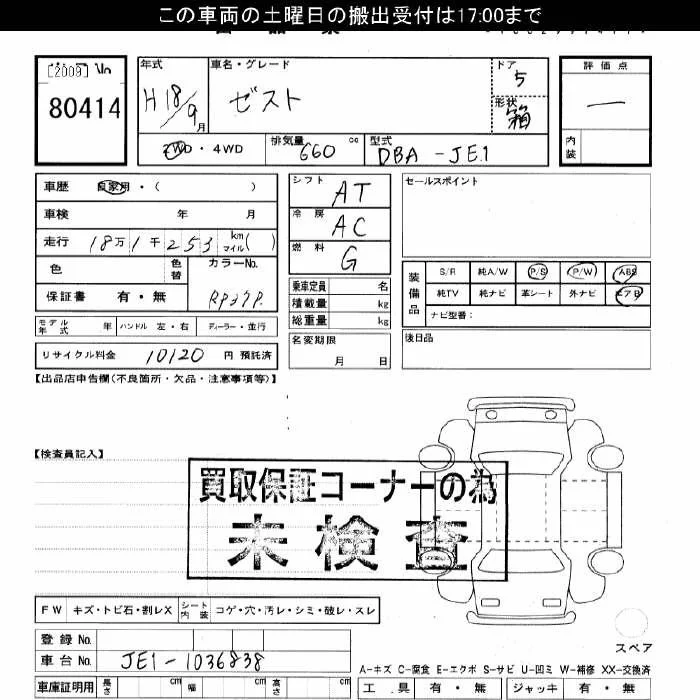 この車両の土曜日の搬出受付は17:00まで
[2009] No
80414
年式
H18/9月
車名・グレード
ゼスト
ドア
5
形状
箱
評価点
—
内装
2WD・4WD
排気量
660 cc
型式
DBA-JE1
車歴 自家用・( )
車検 年 月
走行 18万1千253 km マイル( )
色
色替
カラーNo.
RP37P.
保証書 有・無
モデル年式 年 ハンドル 左・右 ディーラー・並行
リサイクル料金 10120 円 預託済
シフト
AT
冷房
AC
燃料
G
乗車定員 名
積載量 kg
総重量 kg
名変期限
月 日
セールスポイント
装備品
S/R 純A/W P/S P/W ABS
純TV 純ナビ 革シート 外ナビ エアB
ナビ型番:
後日品
【出品店申告欄(不良箇所・欠品・注意事項等)】
【検査員記入】
買取保証コーナーの為
未検査
FW キズ・トビ石・割レX シート内装 コゲ・穴・汚レ・シミ・破レ・スレ
登録No.
車台No. JE1-1036838
車庫証明用 長さ cm 幅 cm 高さ cm
スペア
A-キズ C-腐食 E-エクボ S-サビ U-凹ミ W-補修 XX-交換済
工具 有・無 ジャッキ 有・無